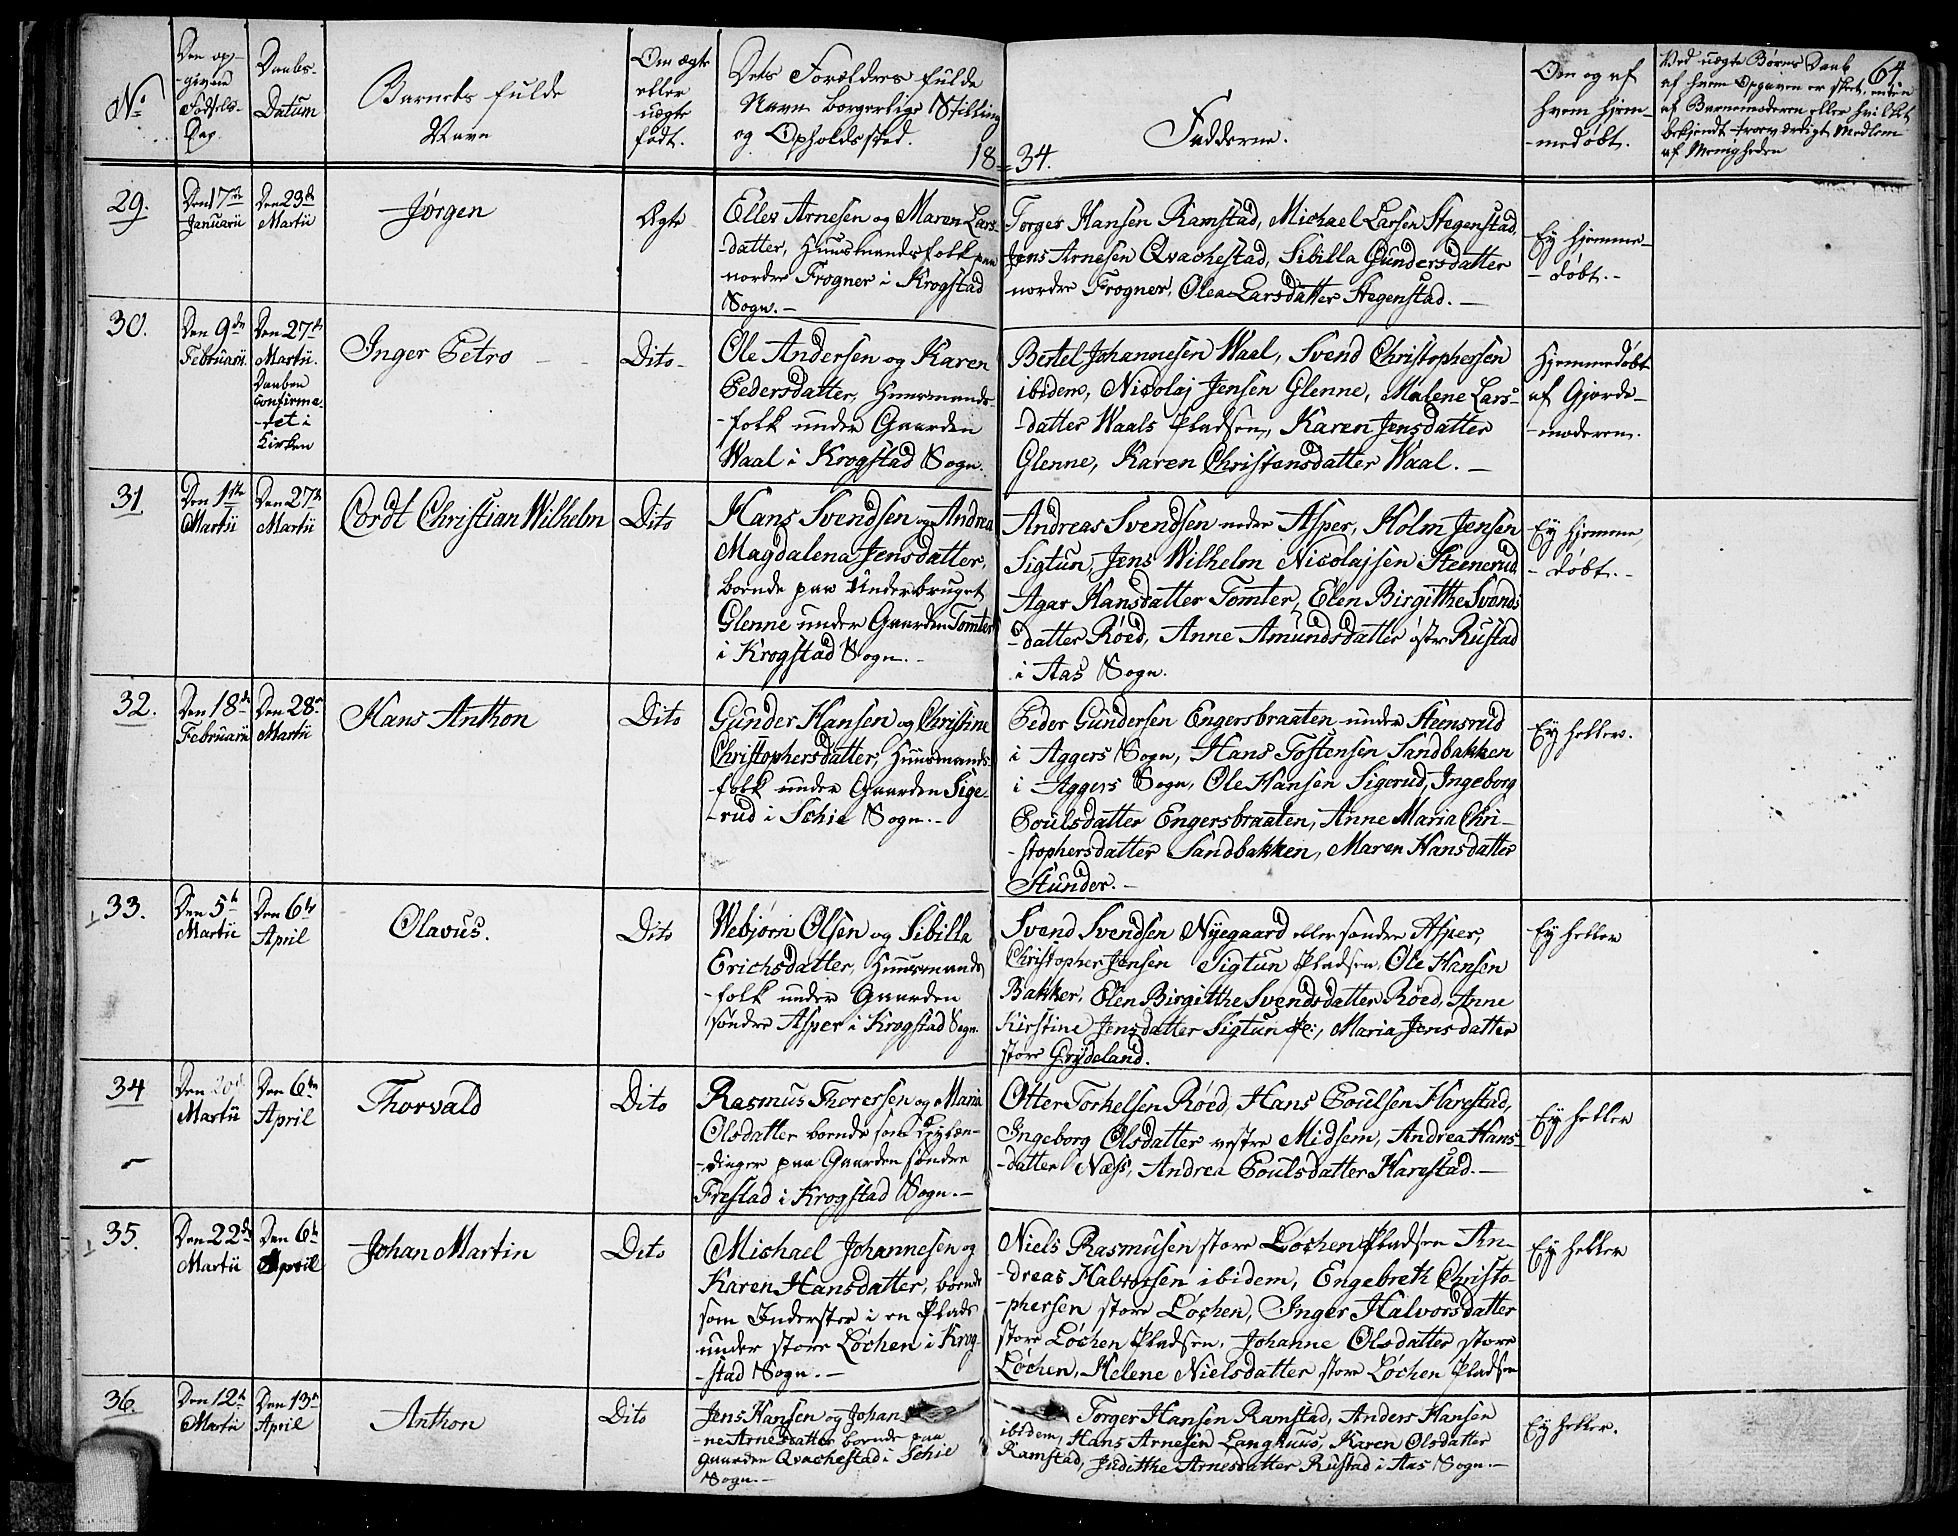 64.
No
Den op-
-givne
Fødsels-
Dag.
Daabs-
Datum
Barnets fulde
Navn
Om ægte
eller
uægte
født.
Dets Forældres fulde
Navn borgerlige Stilling
og Opholdssted.
18-34.
Fadderne.
Om og af
hvem hjem-
-medøbt.
Ved uægte Børns Daab
af hvem Opgaven er skeet, enten
af Barnemoderen eller hvilket
bekjendt troeværdigt Medlem
af Menigheden
29.
Den 17de
Januarii
Den 23de
Martii
Jørgen
Ægte
Elles Arnesen og Maren Lars-
-datter, Huusmandsfolk paa
nordre Frogner i Krogstad
Sogn.-
Torger Hansen Ramstad, Michael Larsen Stegenstad,
Jens Arnesen Qvachestad, Sibilla Gundersdatter
nordre Frogner, Olea Larsdatter Stegenstad.-
Ey hjemme-
-døbt.-
30.
Den 9de
Februarii
Den 27de
Martii.
Daaben
confirme-
-ret i
Kirken
Inger Petro
Dito-
Ole Andersen og Karen
Pedersdatter, Huusmands-
-folk under Gaarden
Waal i Krogstad Sogn.
Bertel Johannesen Waal, Svend Christophersen
ibidem, Nicolaj Jensen Glenne, Malene Lars-
-datter Waals Pladsen, Karen Jensdatter
Glenne, Karen Christensdatter Waal.-
Hjemmedøbt
af Gjorde-
-moderen.
31
Den 1ste
Martii
Den 27de
Martii
Cordt Christian Wilhelm
Dito
Hans Svendsen og Andrea
Magdalena Jensdatter,
boende paa Underbruget
Glenne under Gaarden Tomter
i Krogstad Sogn.-
Andreas Svendsen nedre Asper, Holm Jensen
Sigtun, Jens Wilhelm Nicolajsen Steenerud,
Agar Hansdatter Tomter, Elen Birgitthe Svends
-datter Røed, Anne Amundsdatter østre Rustad
i Aas Sogn.
Ey hjemme
-døbt.-
32.
Den 18de
Februarii
Den 28de
Martii
Hans Anthon
Dito
Gunder Hansen og Christine
Christophersdatter, Huusmands-
-folk under Gaarden Sige-
-rud i Schie Sogn.-
Peder Gundersen Engersbraaten under Steensrud
i Aggers Sogn, Hans Tostensen Sandbakken
i Aggers Sogn, Ole Hansen Sigerud, Ingeborg
Poulsdatter Engersbraaten, Anne Maria Chri-
-stophersdatter Sandbakken, Maren Hansdatter
Stunder.-
Ey heller.
33.
Den 5te
Martii
Den 6te
April
Olavus.
Dito
Webjørn Olsen og Sibilla
Erichsdatter, Huusmands
-folk under Gaarden
søndre Asper i Krogstad Sogn.
Svend Svendsen Nyegaard eller søndre Asper,
Christopher Jensen Sigtun Pladsen, Ole Hansen
Bakker, Elen Birgitthe Svendsdatter Røed, Anne
Kirstine Jensdatter Sigtun Pl:, Maria Jensdatter
store Grydeland.
Ey heller
34
Den 20de
Martii
Den 6te
April
Thorvald
Dito
Rasmus Thoresen og Maria
Olsdatter boende som Pylæn-
-dinger paa Gaarden søndre
Frestad i Krogstad Sogn.-
Otter Torkelsen Røed, Hans Poulsen Harestad,
Ingeborg Olsdatter vestre Midsem, Andrea Hans-
-datter Næss, Andrea Poulsdatter Harestad.-
Ey heller
35.
Den 22de
Martii
Den 6te
April
Johan Martin
Dito
Michael Johannesen og
Karen Hansdatter, boende
som Inderster i en Plads
under store Løchen i Krog-
-stad Sogn.-
Niels Rasmusen store Løchen Pladsen An-
-dreas Halvorsen ibidem, Engebreth Christo-
-phersen store Løchen, Inger Halvorsdatter
store Løchen Pladsen, Johanne Olsdatter store
Løchen, Helene Nielsdatter store Løchen Pladsen
Ey heller
36.
Den 12te
Martii
Den 13de
April
Anthon
Dito
Jens Hansen og Johan
-ne Arnesdatter boende paa
Gaarden Qvachestad i Schie
Sogn.-
Torger Hansen Ramstad, Anders Hansen
ibidem, Hans Arnesen Langhuus, Karen Olsdatter
Ramstad, Judithe Arnesdatter Rustad i Aas Sogn.-
Ey heller.